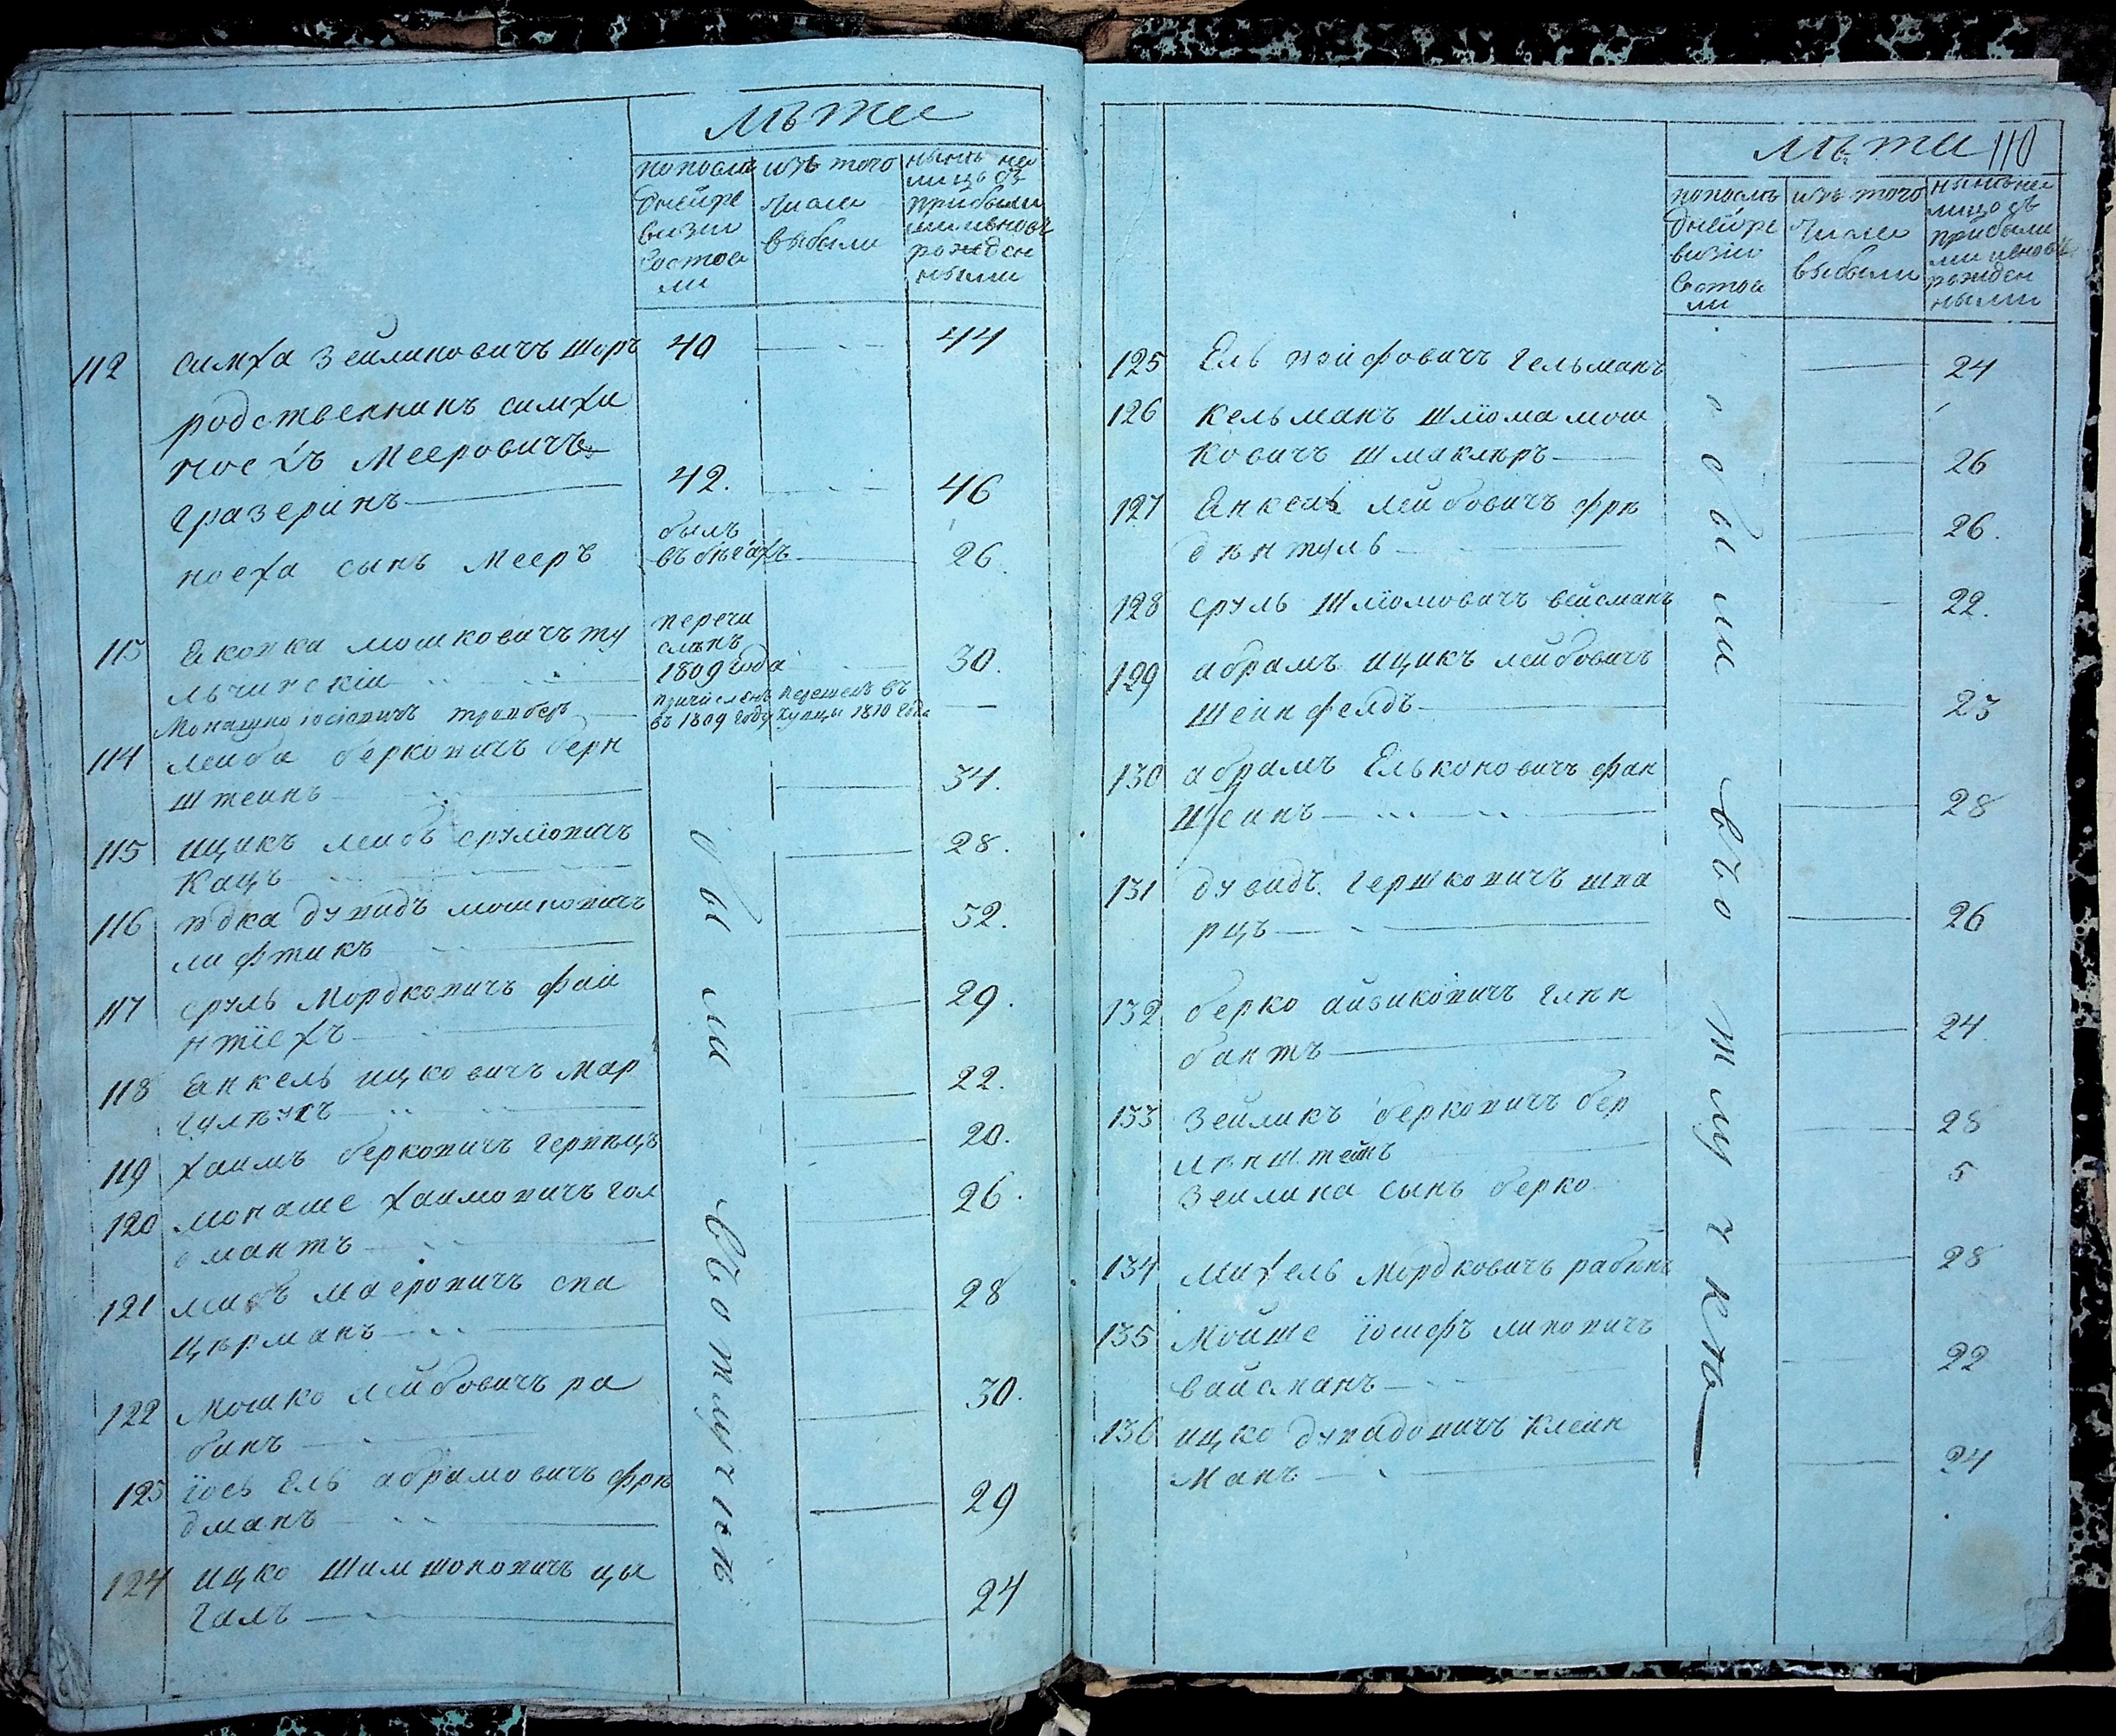 Лѣта
попослѣ
днейре
визiи
Состоя
ли
изъ того
числа
выбыли
нынѣ на
лицо съ
прибылы
ми ивновь
рожден
ными
112 симха Зейликовичъ шоръ 40 44
родственникъ симхи
ноехъ Мееровичъ
гразеринъ 42. 46
ноеха сынъ Мееръ былъ
въ бѣгахъ 26.
113 Якопка мошковичъ ту
льчинскiи перечи
сленъ
1809 года 30.
Монашко iосiоничъ
причисленъ
въ 1809 году
перешелъ въ
купцы 1810 года
114 леиба берковичъ берн
штеинъ 34.
115 ицикъ леибъ сруліовичъ
Кацъ 28.
116 юдка дувидъ мошковичъ
лифтикъ 52.
117 сруль Мордковичъ фаи
нтіехъ 29.
118 Янкель ицковичъ Мар
22.
119 хаимъ берковичъ герпѣцъ 20.
120 монаше хаимовичъ гол
омантъ 26.
121 леибъ маеровичъ спа
цѣрманъ 28
122 Мошко леибовичъ ра
бинъ 30.
123 їось Ель абрамовичъ фрѣ
дманъ 29
124 ицко Шимшоновичъ цы
галъ 24
были въотлучкѣ
Лѣта 110
попослѣ
днейре
визiи
Состоя
ли
изъ того
числа
выбыли
нынѣ на
лицо съ
прибылы
ми ивновь
рожден
ными
125 Ель вэифовичъ гельманъ 24
126 кельманъ Шліома мош
ковичъ шмуклѣръ 26
127 Янкель леибовичъ фрѣ
дѣнталь 26.
128 сруль Шліомовичъ веисманъ 22.
129 абрамъ ицикъ леибовичъ
Шеинфелдъ 23
130 абрамъ Ельконовичъ фан
Шеинъ 28
131 дувидъ гершковичъ шва
рцъ 26
132 берко айзиковичъ глѣн
бантъ 24.
133 Зеиликъ берковичъ бер
лѣнштейнъ 28
Зеилика сынъ берко 5
134 Михель Мордковичъ рабинъ 28
135 Моише їосифъ ликовичъ
вайсманъ 22
136 ицко дувидовичъ Клеин
Манъ 24
были въотлучкѣ